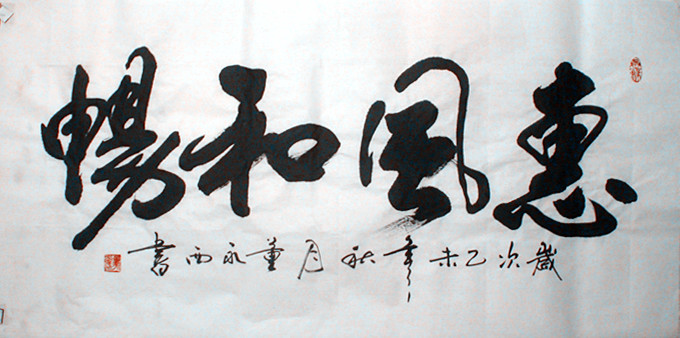 惠風和暢
歲次乙未年秋月董永西書